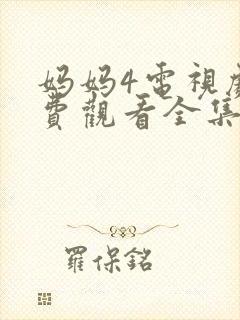 妈妈4電視劇
費觀看全集
羅保銘